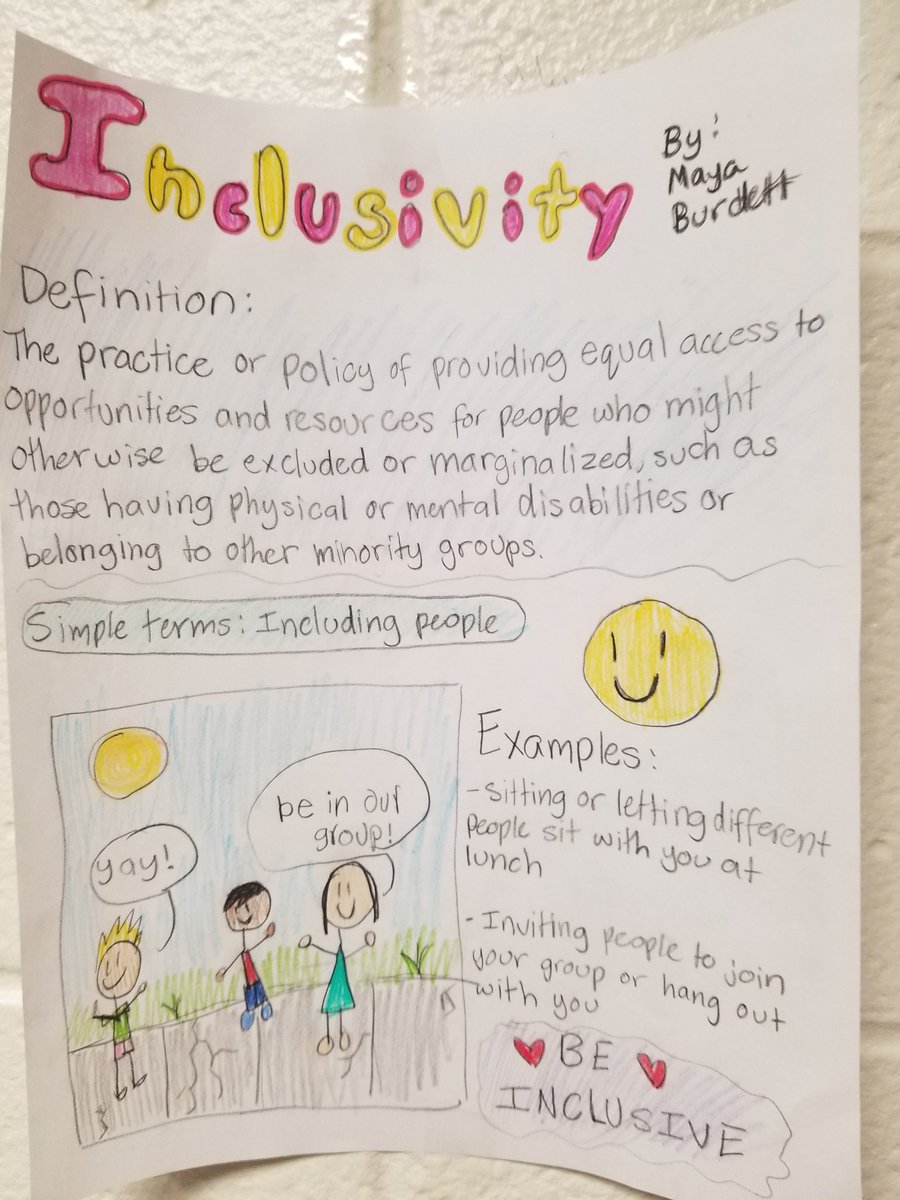 Inclusivity
By:
Maya
Burdett
Definition:
The practice or policy of providing equal access to
opportunities and resources for people who might
otherwise be excluded or marginalized, such as
those having physical or mental disabilities or
belonging to other minority groups.
Simple terms: Including people
yay!
be in our
group!
Examples:
-sitting or letting different
people sit with you at
lunch
- Inviting people to join
your group or hang out
with you
BE
INCLUSIVE